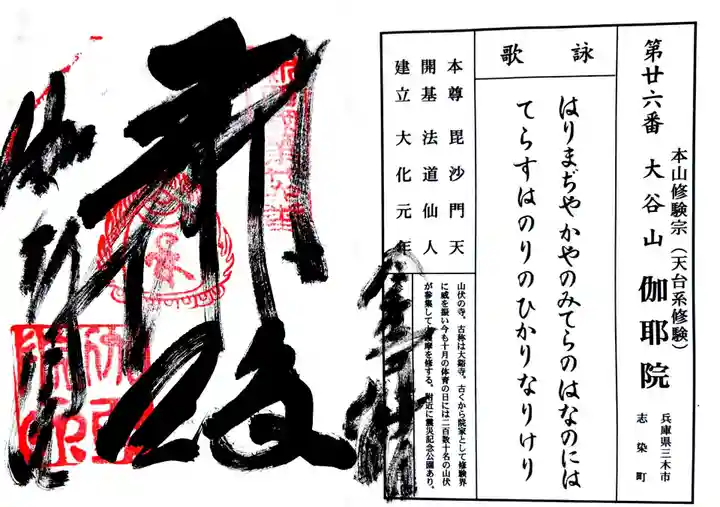 第廿六番 大谷山 伽耶院
本山修験宗(天台系修験)
兵庫県三木市
志染町
詠歌
はりまぢやかやのみてらのはなのには
てらすはのりのひかりなりけり
本尊 毘沙門天
開基 法道仙人
建立 大化元年
山伏の寺。古称は大谿寺。古くから院家として修験界
に威を振い今も十月の体育の日には二百数十名の山伏
が参集して護摩を修する。附近に震災記念公園あり。